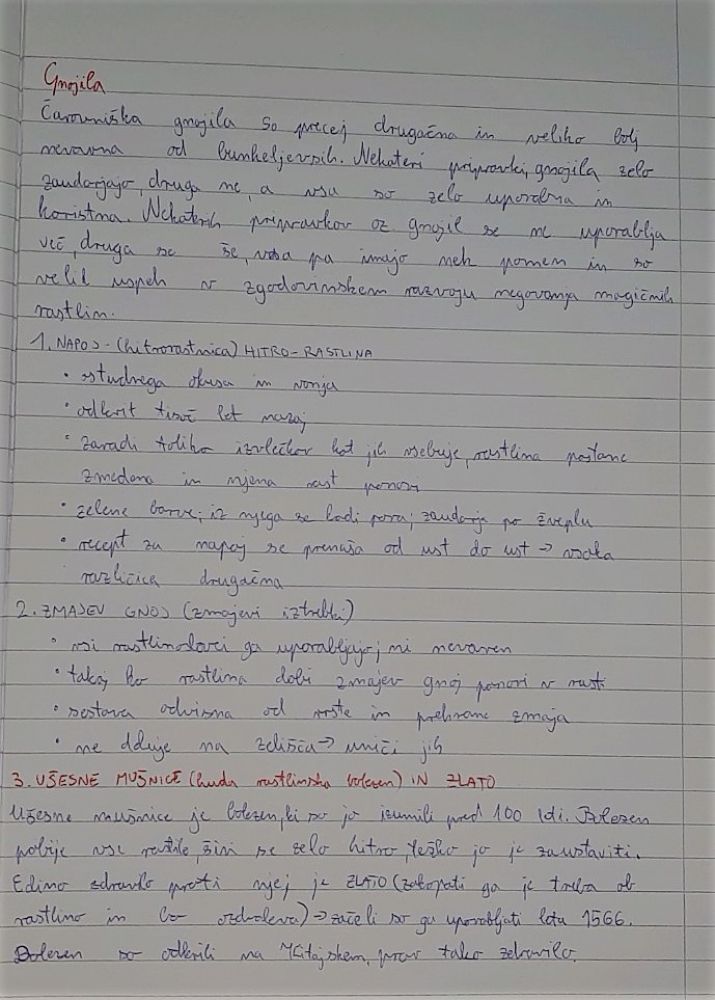 Gnojila
Čarovniška gnojila so precej drugačna in veliko bolj
nevarna od bunkeljevskih. Nekateri pripravki, gnojila zelo
zaudarjajo, druga ne, a vsa so zelo uporabna in
koristna. Nekaterih pripravkov oz. gnojil se ne uporablja
več, druga se še, vsa pa imajo nek pomen in so
velik uspeh v zgodovinskem razvoju negovanja magičnih
rastlin.
1. NAPOJ - (hitrorastnica) HITRO-RASTLINA
• ostudnega okusa in vonja
• odkrit tisoč let nazaj
• zaradi toliko izvlečkov kot jih vsebuje, rastlina postane
zmedena in njena rast ponori
• zelene barve; iz njega se kadi para; zaudarja po žveplu
• recept za napoj se prenaša od ust do ust → vsaka
različica drugačna
2. ZMAJEV GNOJ (zmajevi iztrebki)
• vsi rastlinodavci ga uporabljajo; ni nevaren
• takoj ko rastlina dobi zmajev gnoj ponori v rasti
• sestava odvisna od vrste in prehrane zmaja
• ne deluje na zelišča → uniči jih
3. UŠESNE MUŠNICE (huda rastlinska bolezen) IN ZLATO
Ušesne mušnice je bolezen, ki so jo izumili pred 100 leti. Bolezen
pobije vse rastline, širi se zelo hitro, težko jo je zaustaviti.
Edino zdravilo proti njej je ZLATO (zakopati ga je treba ob
rastlino in bo ozdravela) → začeli so ga uporabljati leta 1566.
Bolezen so odkrili na Kitajskem, prav tako zdravilo.